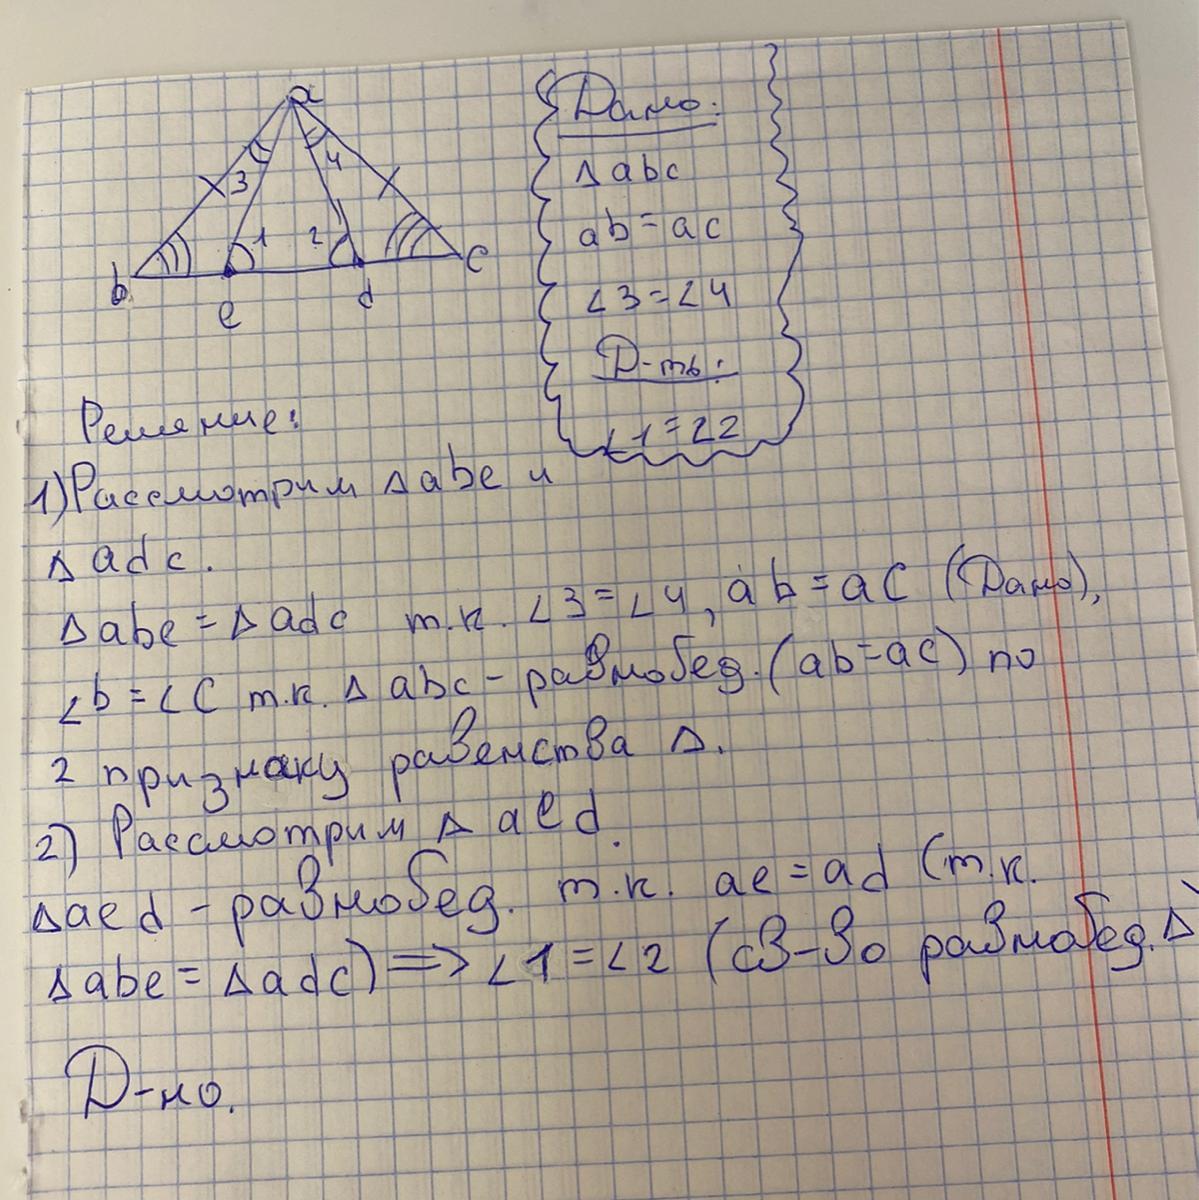 a
3
4
1
2
b
c
e
d
Дано:
∆ abc
ab = ac
∠3 = ∠4
Д-ть:
∠1 = ∠2
Решение:
1) Рассмотрим ∆ abe и
∆ adc.
∆ abe = ∆ adc т.к. ∠3 = ∠4, ab = ac (Дано),
∠b = ∠C т.к. ∆ abc - равнобед. (ab = ac) по
2 признаку равенства ∆.
2) Рассмотрим ∆ aed.
∆ aed - равнобед. т.к. ae = ad (т.к.
∆ abe = ∆ adc) => ∠1 = ∠2 (св-во равнобед. ∆)
Д-но.